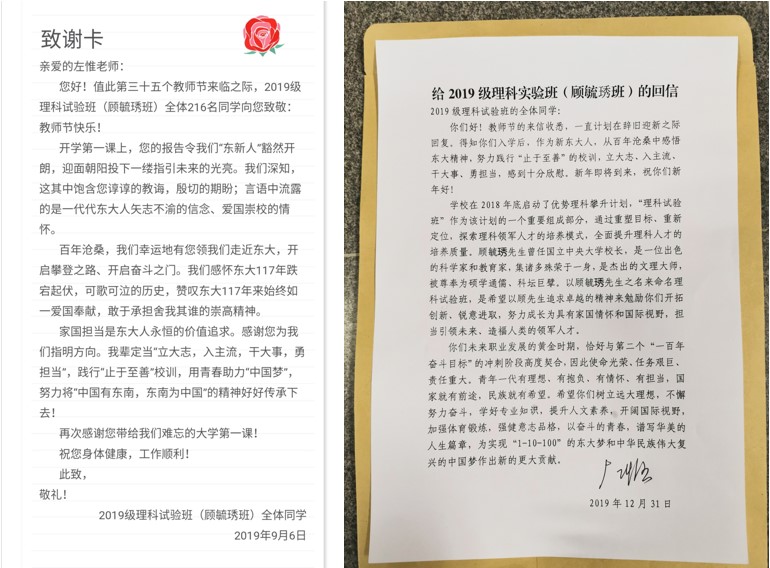 致谢卡
亲爱的左惟老师：
您好！值此第三十五个教师节来临之际，2019级
理科试验班（顾毓琇班）全体216名同学向您致敬：
教师节快乐！
开学第一课上，您的报告令我们“东新人”豁然开
朗，迎面朝阳投下一缕指引未来的光亮。我们深知，
这其中饱含您谆谆的教诲，殷切的期盼；言语中流露
的是一代代东大人矢志不渝的信念、爱国崇校的情
怀。
百年沧桑，我们幸运地有您领我们走近东大，开
启攀登之路、开启奋斗之门。我们感怀东大117年跌
宕起伏，可歌可泣的历史，赞叹东大117年来始终如
一爱国奉献，敢于承担舍我其谁的崇高精神。
家国担当是东大人永恒的价值追求。感谢您为我
们指明方向。我辈定当“立大志，入主流，干大事，勇
担当”，践行“止于至善”校训，用青春助力“中国梦”，
努力将“中国有东南，东南为中国”的精神好好传承下
去！
再次感谢您带给我们难忘的大学第一课！
祝您身体健康，工作顺利！
此致，
敬礼！
2019级理科试验班（顾毓琇班）全体同学
2019年9月6日
给 2019 级理科实验班（顾毓琇班）的回信
2019 级理科试验班的全体同学：
你们好！教师节的来信收悉，一直计划在辞旧迎新之际
回复。得知你们入学后，作为新东大人，从百年沧桑中感悟
东大精神，努力践行“止于至善”的校训，立大志、入主流、
干大事、勇担当，感到十分欣慰。新年即将到来，祝你们新
年好！
学校在 2018 年底启动了优势理科攀升计划，“理科试验
班”作为该计划的一个重要组成部分，通过重塑目标、重新
定位，探索理科领军人才的培养模式，全面提升理科人才的
培养质量。顾毓琇先生曾任国立中央大学校长，是一位出色
的科学家和教育家，集诸多殊荣于一身，是杰出的文理大师，
被尊奉为硕学通儒、科坛巨擘。以顾毓琇先生之名来命名理
科试验班，是希望以顾先生追求卓越的精神来勉励你们开拓
创新、锐意进取，努力成长为具有家国情怀和国际视野，担
当引领未来、造福人类的领军人才。
你们未来职业发展的黄金时期，恰好与第二个“一百年
奋斗目标”的冲刺阶段高度契合，因此使命光荣、任务艰巨、
责任重大。青年一代有理想、有抱负、有情怀、有担当，国
家就有前途，民族就有希望。希望你们树立远大理想，不懈
努力奋斗，学好专业知识，提升人文素养，开阔国际视野，
加强体育锻炼，强健意志品格，以奋斗的青春，谱写华美的
人生篇章，为实现“1-10-100”的东大梦和中华民族伟大复
兴的中国梦作出新的更大贡献。
2019 年 12 月 31 日